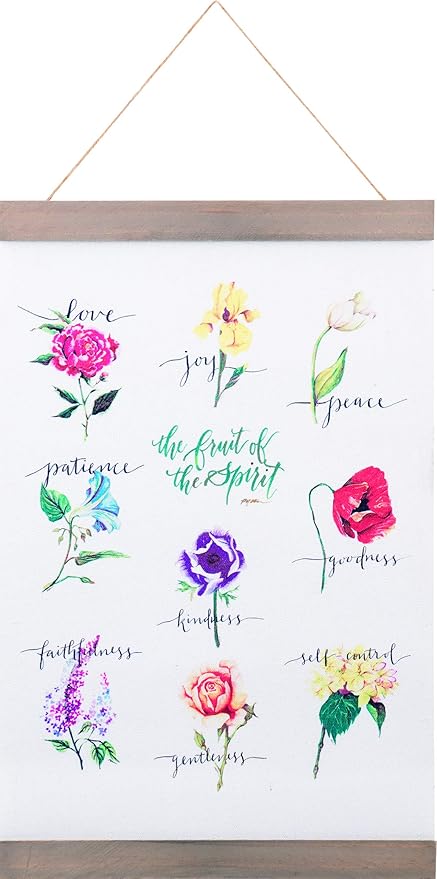 love
joy
peace
the fruit of
the Spirit
patience
goodness
kindness
faithfulness
self control
gentleness